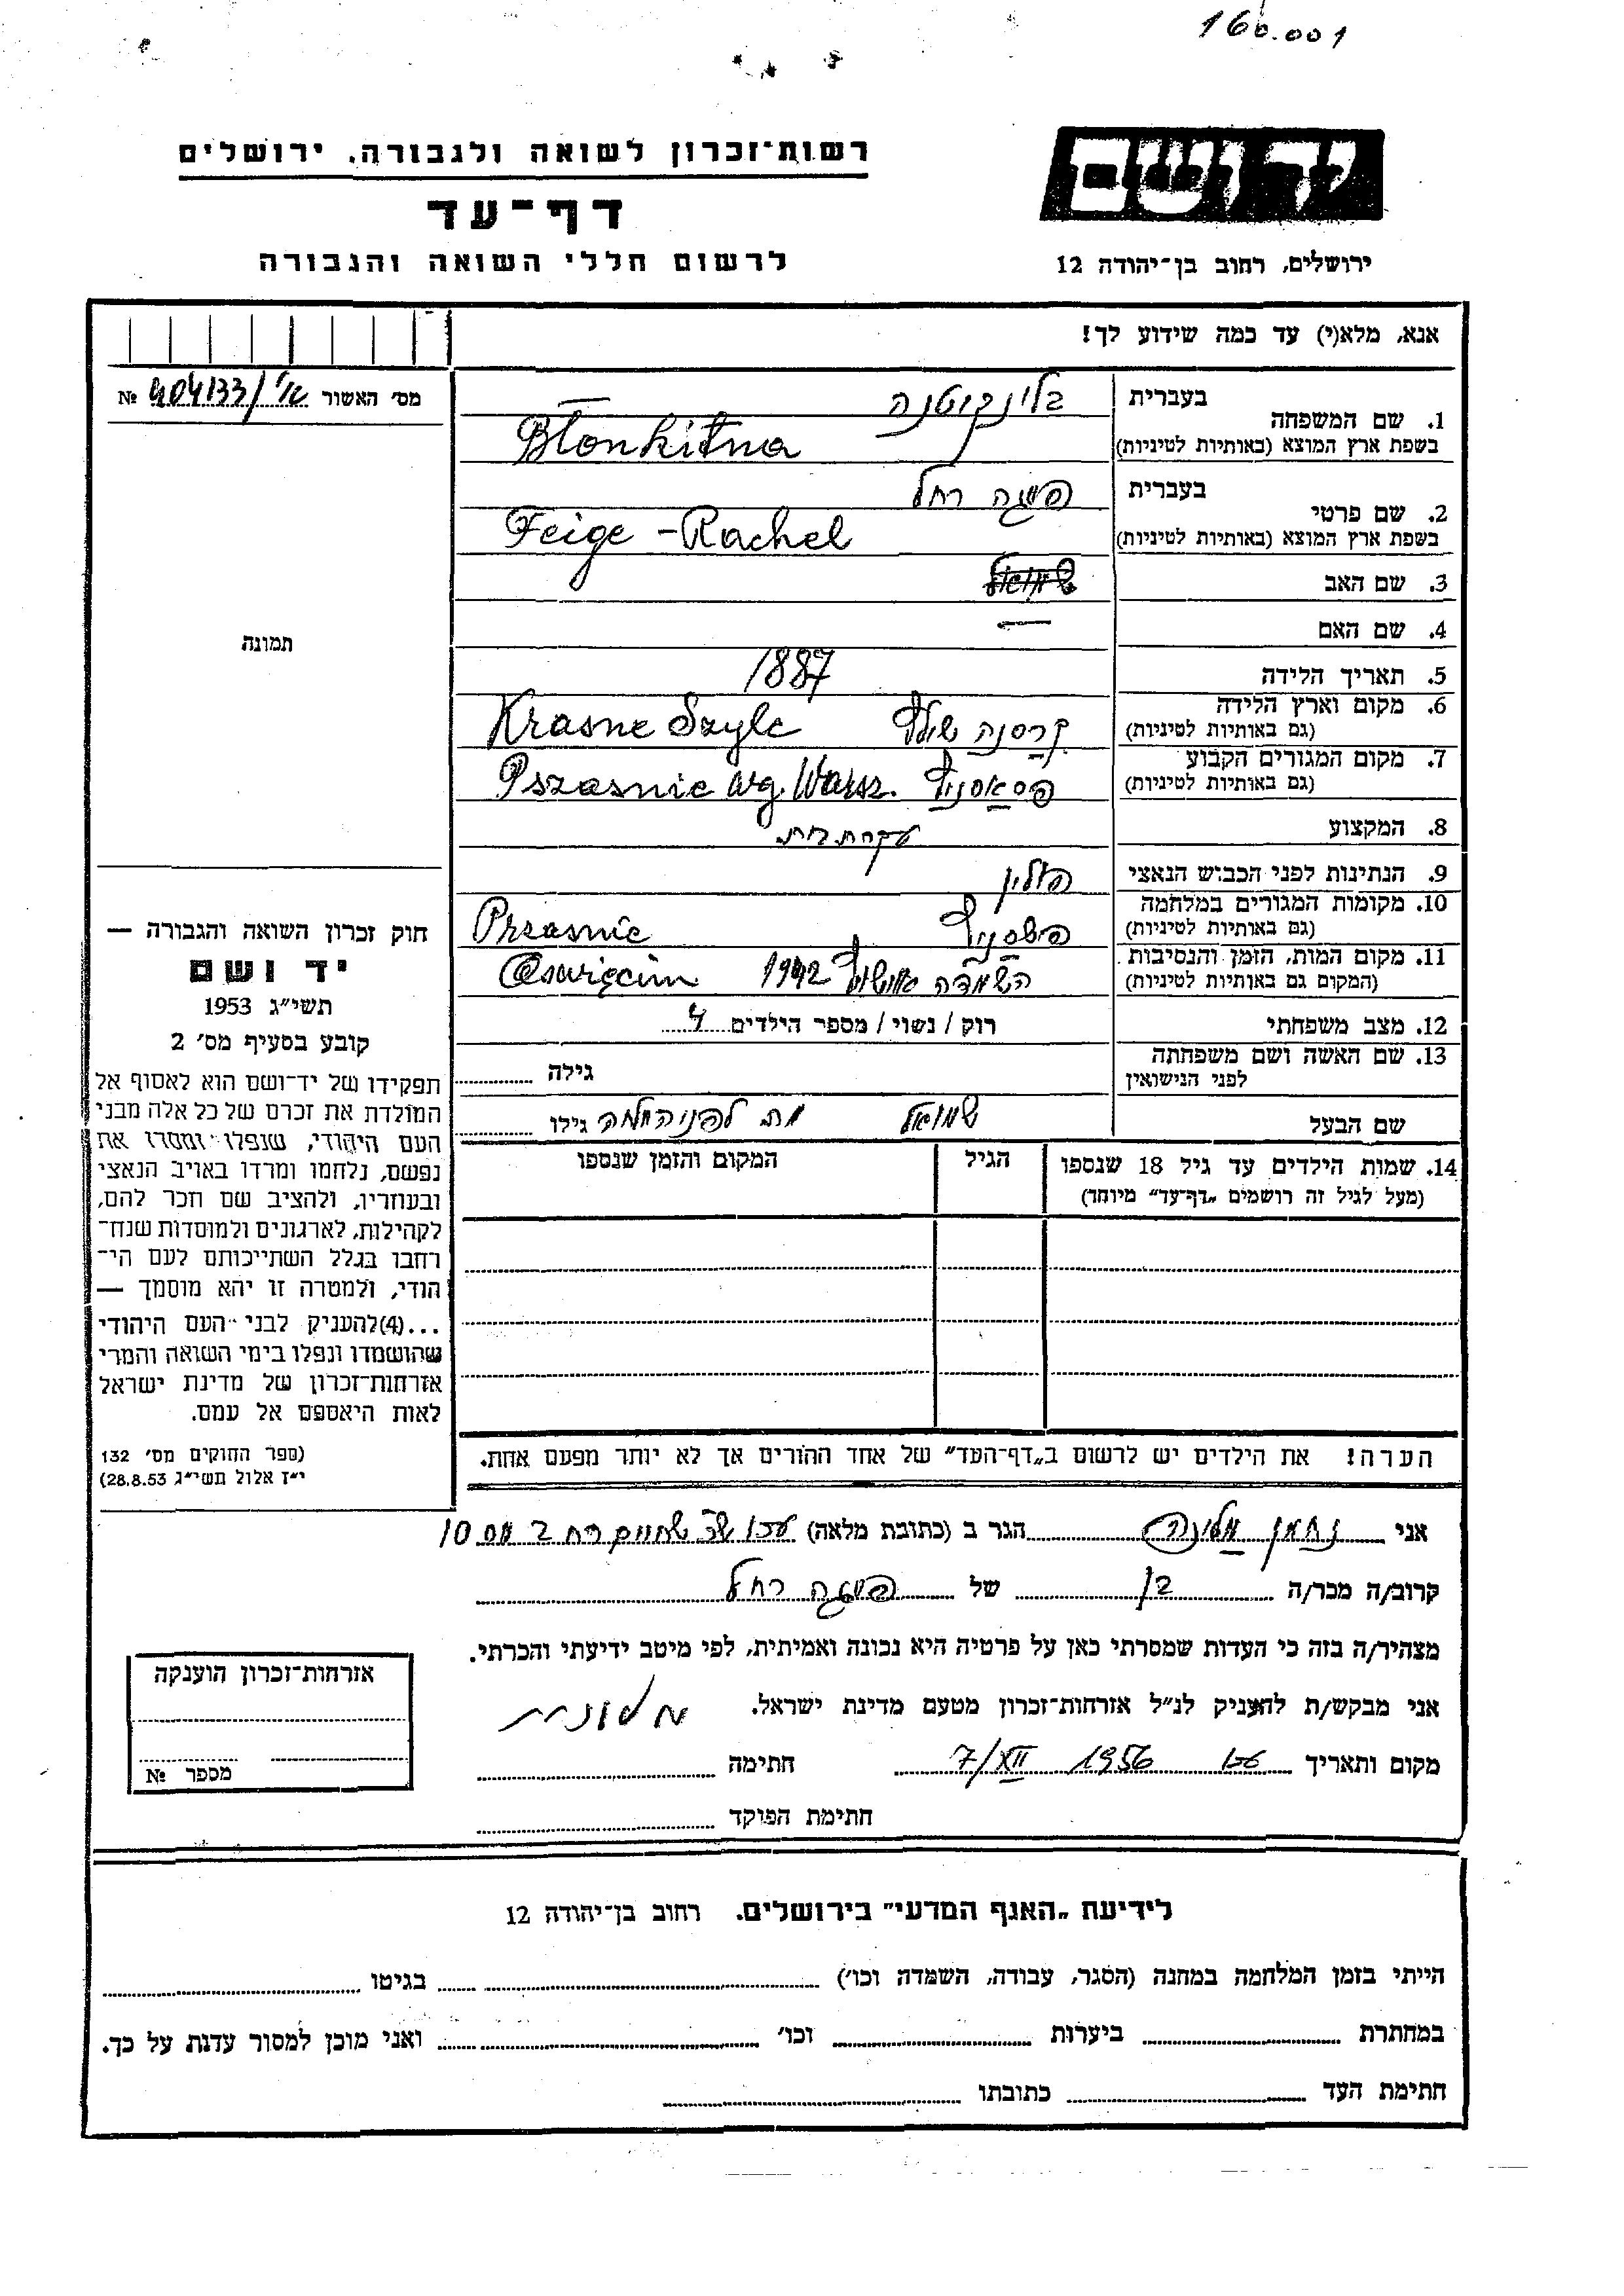 160.001
יד ושם
רשות־זכרון לשואה ולגבורה, ירושלים
דף־עד
לרשום חללי השואה והגבורה
ירושלים, רחוב בן־יהודה 12
אנא, מלא(י) עד כמה שידוע לך!
מס׳ האשור 404133/ №
1. שם המשפחה
בעברית בלינקיטנה
בשפת ארץ המוצא (באותיות לטיניות) Błonkitna
2. שם פרטי
בעברית פייגה רחל
בשפת ארץ המוצא (באותיות לטיניות) Feige - Rachel
3. שם האב שמואל
4. שם האם —
5. תאריך הלידה 1887
6. מקום וארץ הלידה
(גם באותיות לטיניות) Krasne Szylc
7. מקום המגורים הקבוע
(גם באותיות לטיניות) Pszasnic wg. Warsz.
8. המקצוע עקרת בית.
9. הנתינות לפני הכבוש הנאצי פולין
10. מקומות המגורים במלחמה
(גם באותיות לטיניות) Przasnic
11. מקום המות, הזמן והנסיבות
(המקום גם באותיות לטיניות) השמדה 1942 Oswięcim
12. מצב משפחתי רוק / נשוי / מספר הילדים 4
13. שם האשה ושם משפחתה
לפני הנישואין גילה
שם הבעל שמואל מת לפני המלחמה גילו
14. שמות הילדים עד גיל 18 שנספו הגיל המקום והזמן שנספו
(מעל לגיל זה רושמים „דף־עד” מיוחד)
הערה! את הילדים יש לרשום ב„דף־העד” של אחד ההורים אך לא יותר מפעם אחת.
תמונה
חוק זכרון השואה והגבורה —
יד ושם
תשי״ג 1953
קובע בסעיף מס׳ 2
תפקידו של יד־ושם הוא לאסוף אל
המולדת את זכרם של כל אלה מבני
העם היהודי, שנפלו ומסרו את
נפשם, נלחמו ומרדו באויב הנאצי
ובעוזריו, ולהציב שם וזכר להם,
לקהילות, לארגונים ולמוסדות שנח־
רבו בגלל השתייכותם לעם הי־
הודי, ולמטרה זו יהא מוסמך —
...(4) להעניק לבני העם היהודי
שהושמדו ונפלו בימי השואה והמרי
אזרחות־זכרון של מדינת ישראל
לאות היאספם אל עמם.
(ספר החוקים מס׳ 132
י״ז אלול תשי״ג 28.8.53)
אני נחמן הגר ב (כתובת מלאה) עכו 10
קרוב/ה מכר/ה בן של פייגה רחל
מצהיר/ה בזה כי העדות שמסרתי כאן על פרטיה היא נכונה ואמיתית, לפי מיטב ידיעתי והכרתי.
אני מבקש/ת להעניק לנ״ל אזרחות־זכרון מטעם מדינת ישראל.
מקום ותאריך עכו 1956 7/XII חתימה
חתימת הפוקד
אזרחות־זכרון הוענקה
מספר №
לידיעת „האגף המדעי” בירושלים. רחוב בן־יהודה 12
הייתי בזמן המלחמה במחנה (הסגר, עבודה, השמדה וכו׳) בגיטו
במחתרת ביערות וכו׳ ואני מוכן למסור עדות על כך.
חתימת העד כתובתו